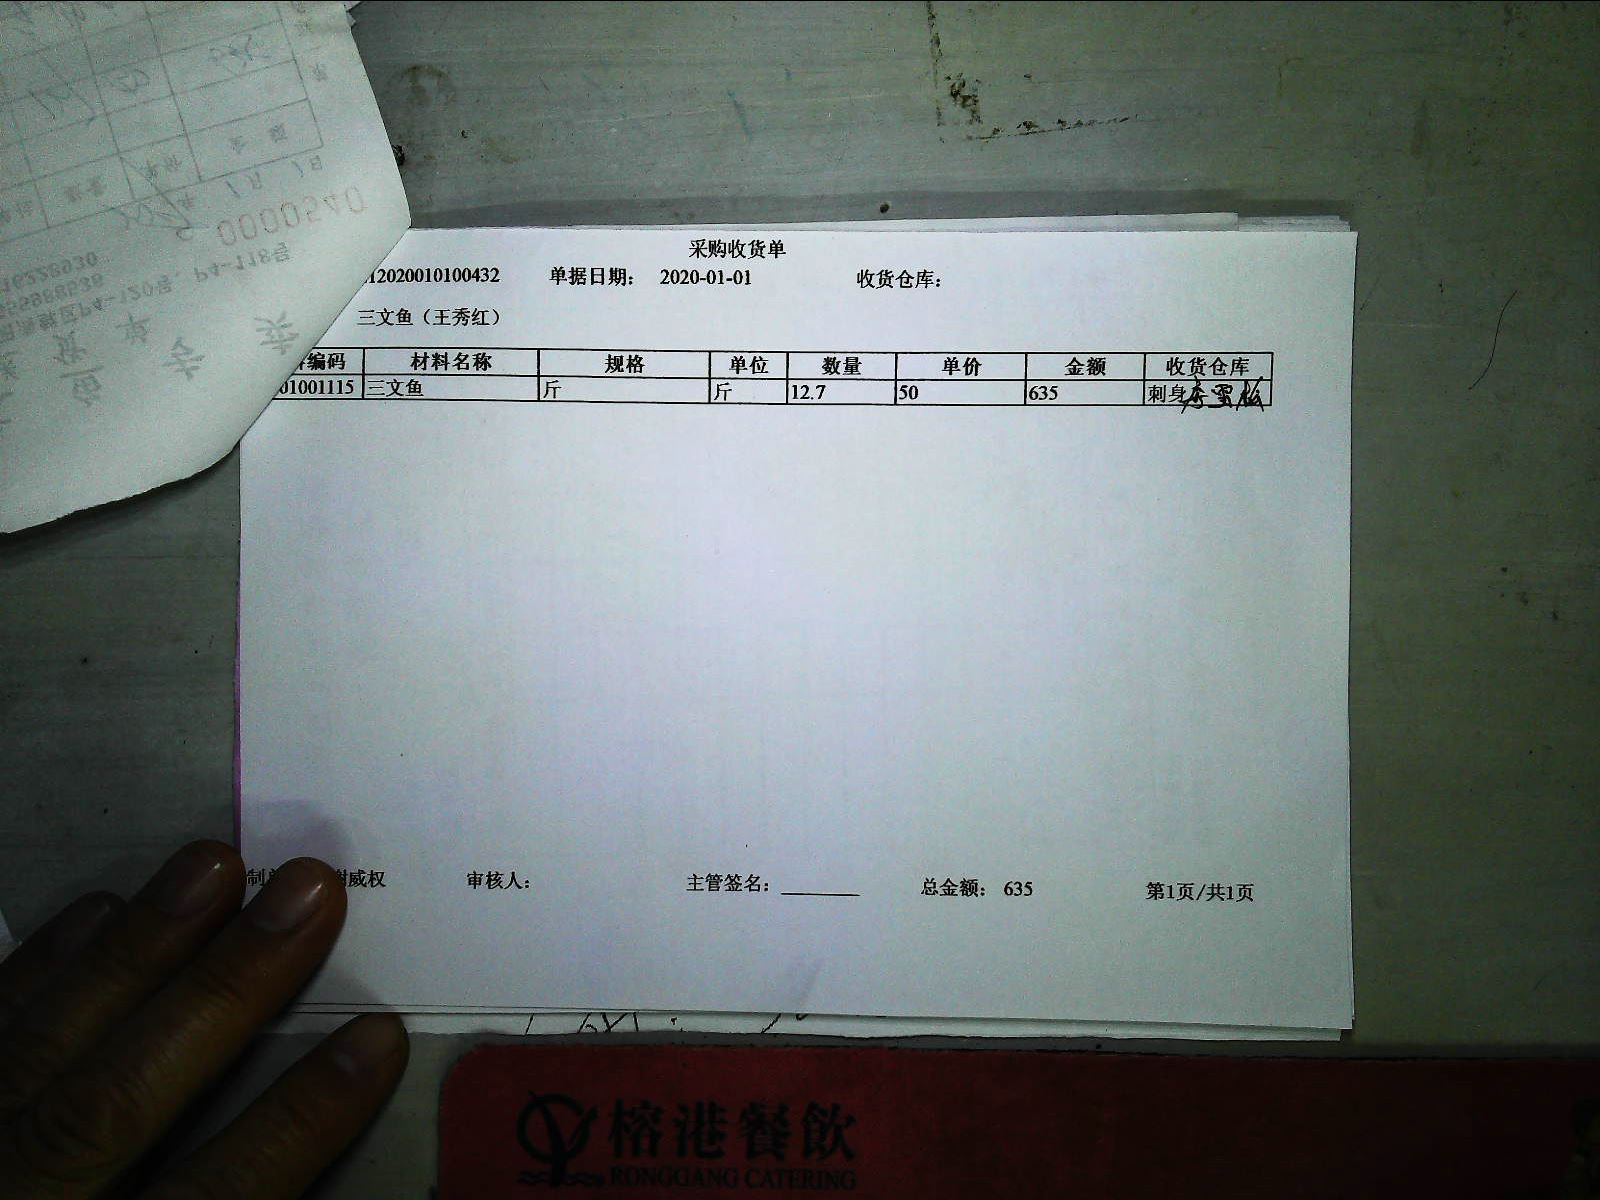 采购收货单
12020010100432 单据日期： 2020-01-01 收货仓库：
三文鱼（王秀红）
编码 材料名称 规格 单位 数量 单价 金额 收货仓库
01001115 三文鱼 斤 斤 12.7 50 635 刺身
制单 谢威权 审核人： 主管签名： 总金额： 635 第1页/共1页
0000540
P4-120号、P4-118号
榕港餐飲
RONGGANG CATERING